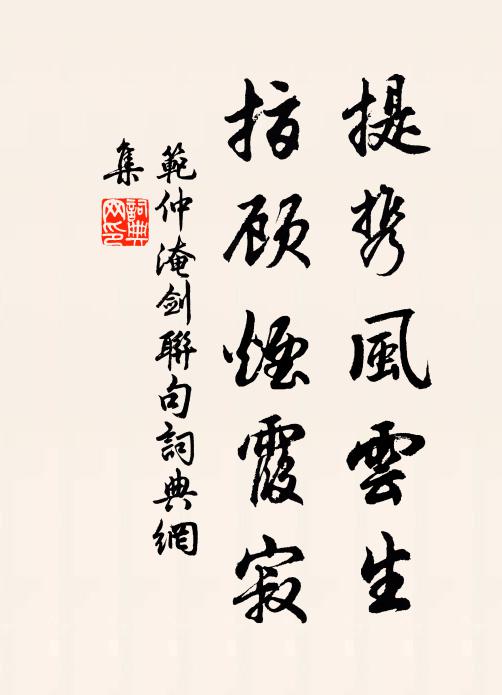 提携風雲生
指顾煙霞寂
範仲淹剑聯句詞典網
集
詞典
网印